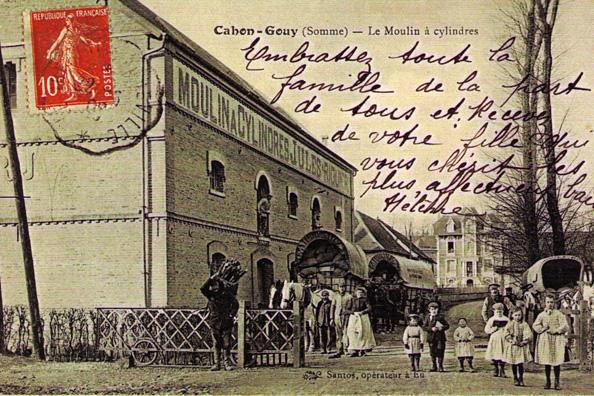 RÉPUBLIQUE FRANÇAISE
10c
POSTES
Cahon-Gouy (Somme) — Le Moulin à cylindres
Embrassez toute la
famille de la part
de tous et
de votre fille qui
vous chérit les
plus affectueux
Hélène
MOULIN A CYLINDRES JULES
Santos, opérateur à Eu